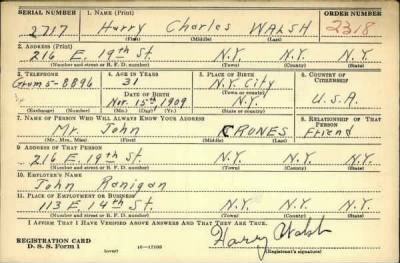 SERIAL NUMBER 1. NAME (Print) ORDER NUMBER
2717 Harry Charles WALSH 2318
(First) (Middle) (Last)
2. ADDRESS (Print)
216 E. 19th St. N.Y. N.Y.
(Number and street or R. F. D. number) (Town) (County) (State)
3. TELEPHONE 4. AGE IN YEARS 5. PLACE OF BIRTH 6. COUNTRY OF CITIZENSHIP
31 N.Y. City
8896 DATE OF BIRTH (Town or county)
Nov. 15th 1909 N.Y. U.S.A.
(Exchange) (Number) (Mo.) (Day) (Yr.) (State or country)
7. NAME OF PERSON WHO WILL ALWAYS KNOW YOUR ADDRESS 8. RELATIONSHIP OF THAT PERSON
Mr. John CRONES Friend
(Mr., Mrs., Miss) (First) (Middle) (Last)
9. ADDRESS OF THAT PERSON
216 E. 19th St. N.Y. N.Y.
(Number and street or R. F. D. number) (Town) (County) (State)
10. EMPLOYER'S NAME
John Ranigan
11. PLACE OF EMPLOYMENT OR BUSINESS
113 E 14th St. N.Y. N.Y.
(Number and street or R. F. D. number) (Town) (County) (State)
I AFFIRM THAT I HAVE VERIFIED ABOVE ANSWERS AND THAT THEY ARE TRUE.
REGISTRATION CARD
D. S. S. Form 1 Harry Walsh
(over) (Registrant's signature)